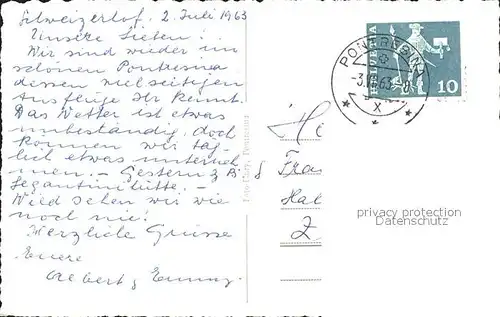 Schweizerhof, 2. Juli 1963
Unsere Lieben!
Wir sind wieder im
schönen Pontresina
dessen vielseitigen
Ausflüge Ihr kennt.
Das Wetter ist etwas
unbeständig, doch
können wir täg-
lich etwas unterneh
men. - Gestern z B.
Segantinihütte. -
Wild sehen wir wie
noch nie!
Herzliche Grüsse
Euere
Albert &
HELVETIA
10
PONTRESINA
-3.VII.63.-8
X
Foto Pontresina
H
&
Fra
Hal
Z
privacy protection
Datenschutz